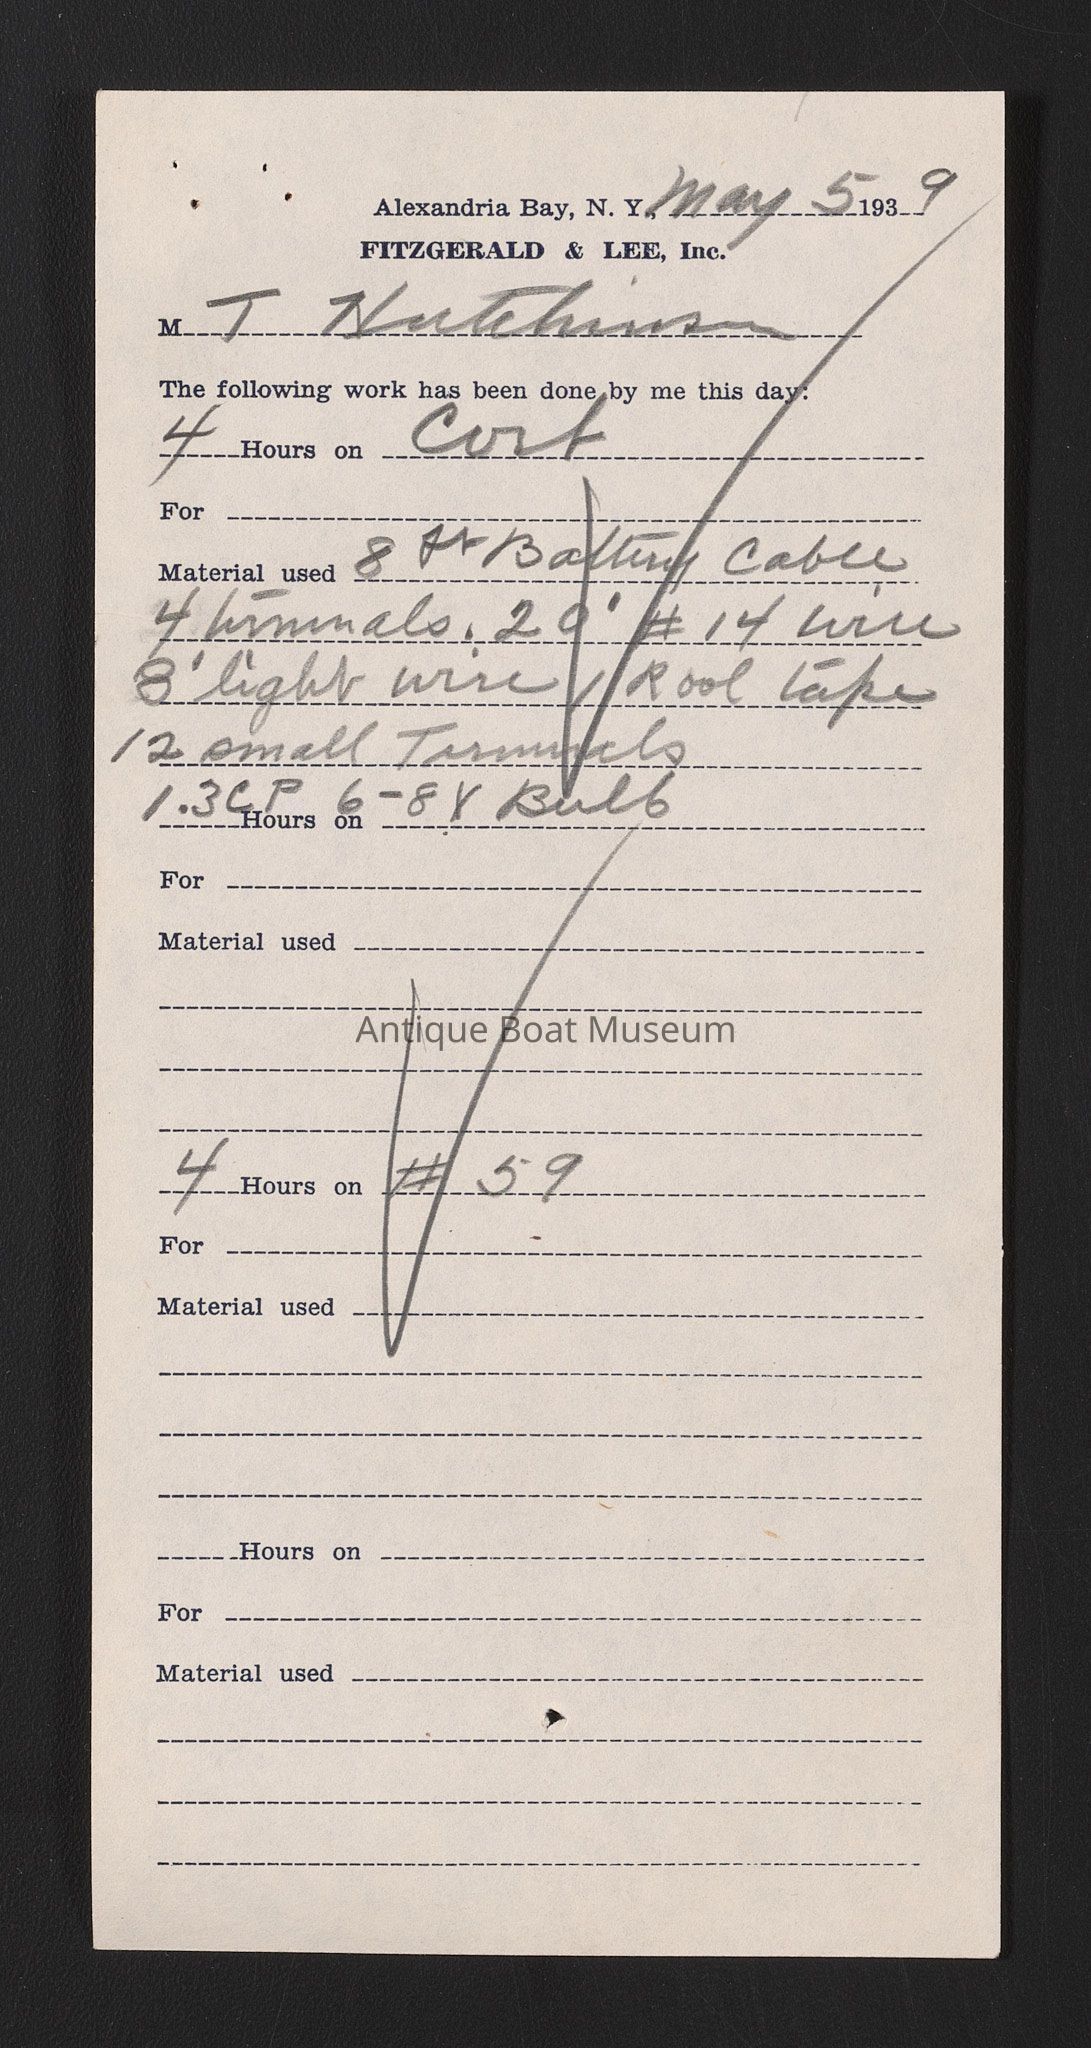 Alexandria Bay, N. Y., May 5 1939
FITZGERALD & LEE, Inc.
M T Hutchinson
The following work has been done by me this day:
4 Hours on
For
Material used 8 ft Battery Cable
4 terminals. 20' # 14 wire
8' light wire 1 Rool tape
12 small Terminals
1.3CP 6-8V Bulb
Hours on
For
Material used
Antique Boat Museum
4 Hours on # 59
For
Material used
Hours on
For
Material used